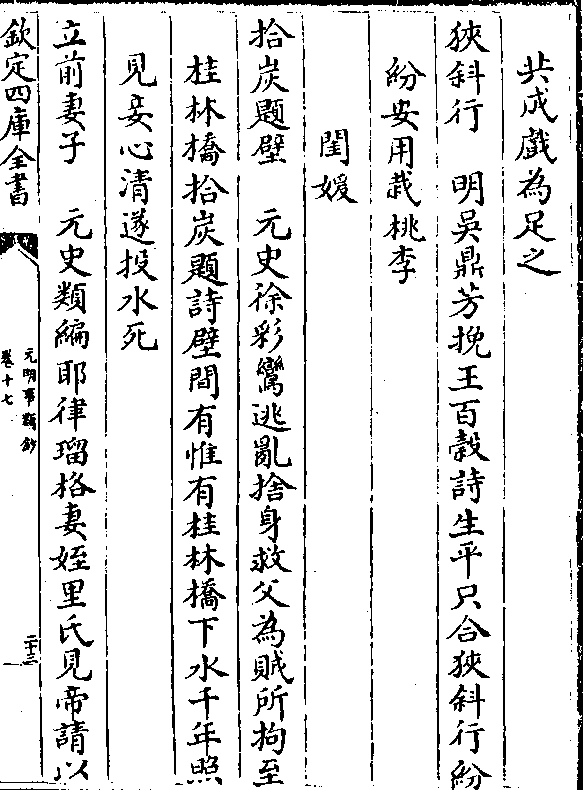 共成戲為足之
狹斜行　明吳鼎芳挽王百穀詩生平只合狹斜行紛
紛安用栽桃李
閨媛
拾炭題壁　元史徐彩鸞逃亂捨身救父為賊所拘至
桂林橋拾炭題詩壁間有惟有桂林橋下水千年照
見妾心清遂投水死
立前妻子　元史類編耶律瑠格妻姪里氏見帝請以
欽定四庫全書
元明事類鈔
卷十七
二十三